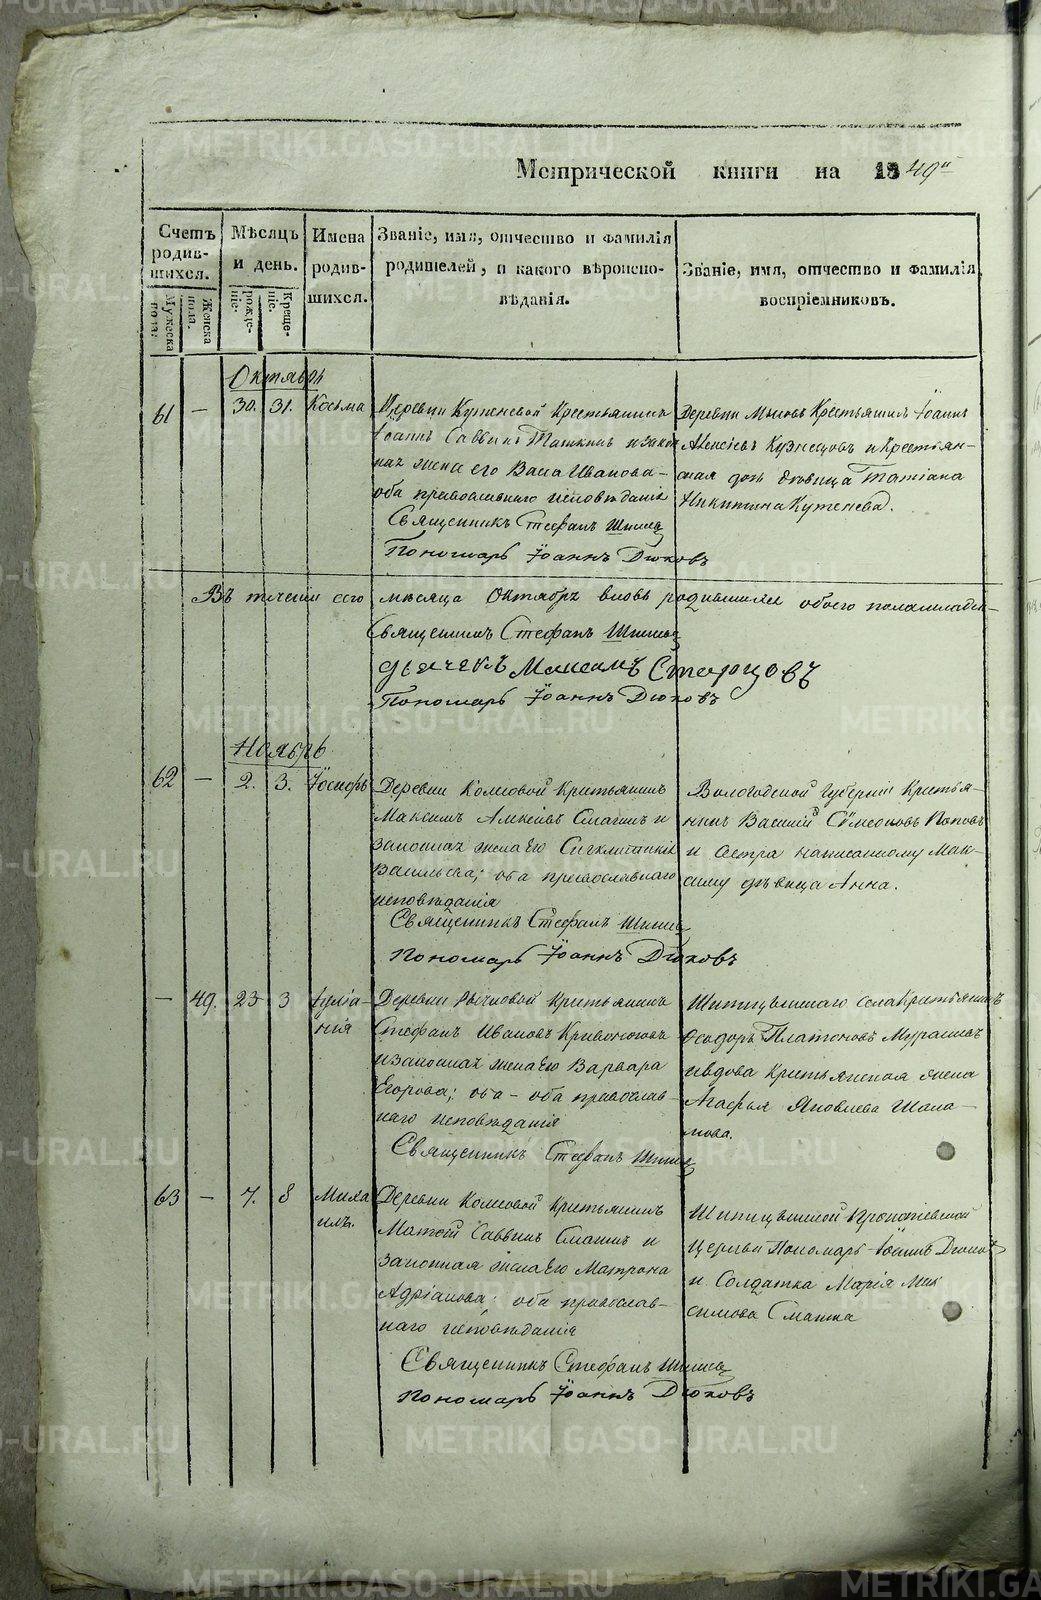 Метрической книги на 1849й
Счетъ родив-шихся.
Мѣсяцъ и день.
Имена родив-шихся.
Званіе, имя, отчество и фамилія
родителей, и какого вѣроиспо-
вѣданія.
Званіе, имя, отчество и фамилія
воспріемниковъ.
Мужеска пола.
Женска пола.
рожде-ніе.
Креще-ніе.
Октябрь
61 — 30. 31. Косьма
Деревни Кутеневой Крестьянинъ
Іоаннъ Саввинъ и закон
ная жена его Васса Иванова—
оба православнаго исповѣданія
Священникъ Стефанъ
Пономарь Іоаннъ Дюковъ
Крестьянинъ Іоаннъ
Алексѣевъ Кузнецовъ и Крестьян-
ская дочь дѣвица Татіана
Никитина Кутенева.
Въ теченіи сего мѣсяца Октября вновь родившихся обоего пола
Священникъ Стефанъ
дьячекъ Максимъ Старцовъ
Пономарь Іоаннъ Дюковъ
Ноябрь
62 — 2. 3. Іосифъ
Деревни Крестьянинъ
Максимъ Алексѣевъ и
законная жена Его Сигклитикія
Васильева; оба православнаго
исповѣданія
Священникъ Стефанъ
Пономарь Іоаннъ Дюковъ
Вологодской Губерніи Крестья-
нинъ Василій Сѷмеоновъ Поповъ
и Сестра написанному Мак-
симу дѣвица Анна.
— 49. 23 3 Іуліа-
нія
Деревни Крестьянинъ
Стефанъ Ивановъ Кривоноговъ
и законная жена Его Варвара
Егорова; оба — оба православ-
наго исповѣданія
Священникъ Стефанъ
Шипицынскаго села Крестьянинъ
Ѳеодоръ Платоновъ
и вдова Крестьянская жена
Агафья Яковлева Шала-
мова.
63 — 7. 8 Миха
илъ.
Деревни Крестьянинъ
Матѳій Саввинъ и
законная жена Его Матрона
Адріанова; оба православ-
наго исповѣданія
Священникъ Стефанъ
Пономарь Іоаннъ Дюковъ
Шипицынской Прокопіевской
Церкви Пономарь Іоаннъ Дюковъ
и Солдатка Марія Мак
симова
METRIKI.GASO-URAL.RU